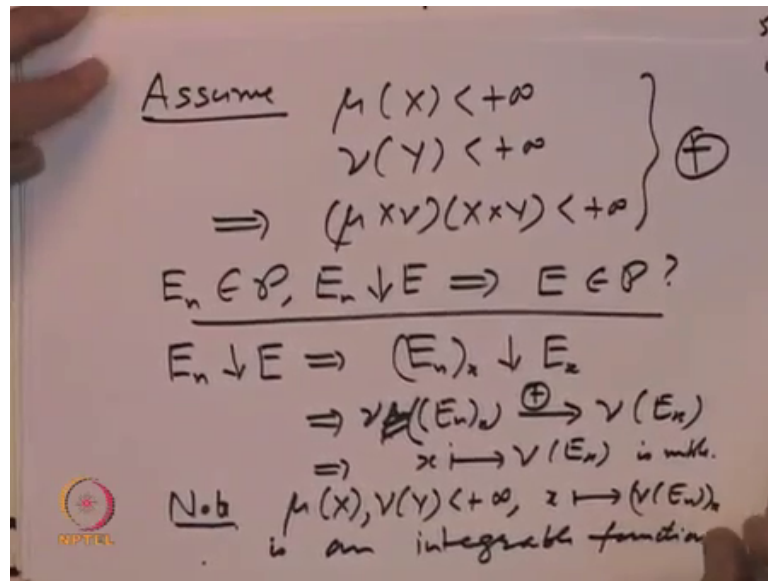 Assume μ(X) < +∞
ν(Y) < +∞
⟹ (μ×ν)(X×Y) < +∞ } ⊕
E_n ∈ P, E_n ↓ E ⟹ E ∈ P ?
E_n ↓ E ⟹ (E_n)_x ↓ E_x
⟹ ν((E_n)_x) ⊕⟶ ν(E_x)
⟹ x ⟼ ν(E_x) is mble.
Note μ(X), ν(Y) < +∞, x ⟼ (ν(E_n)_x
is an integrable function
NPTEL